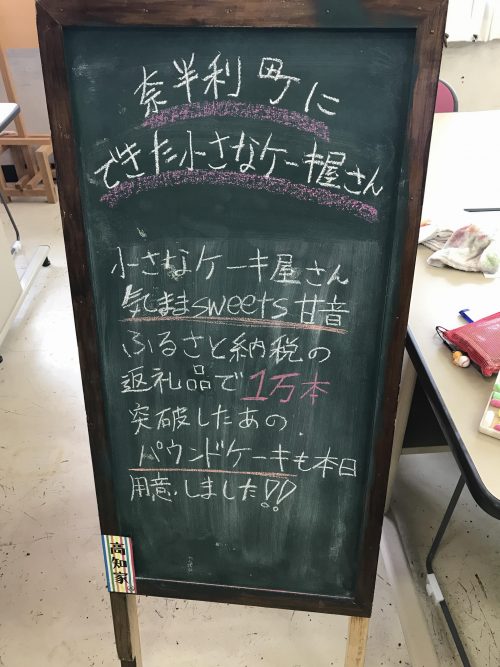 奈半利町に
できた小さなケーキ屋さん
小さなケーキ屋さん
気ままsweets甘音
ふるさと納税の
返礼品で1万本
突破したあの
パウンドケーキも本日
用意しました!!
高知家